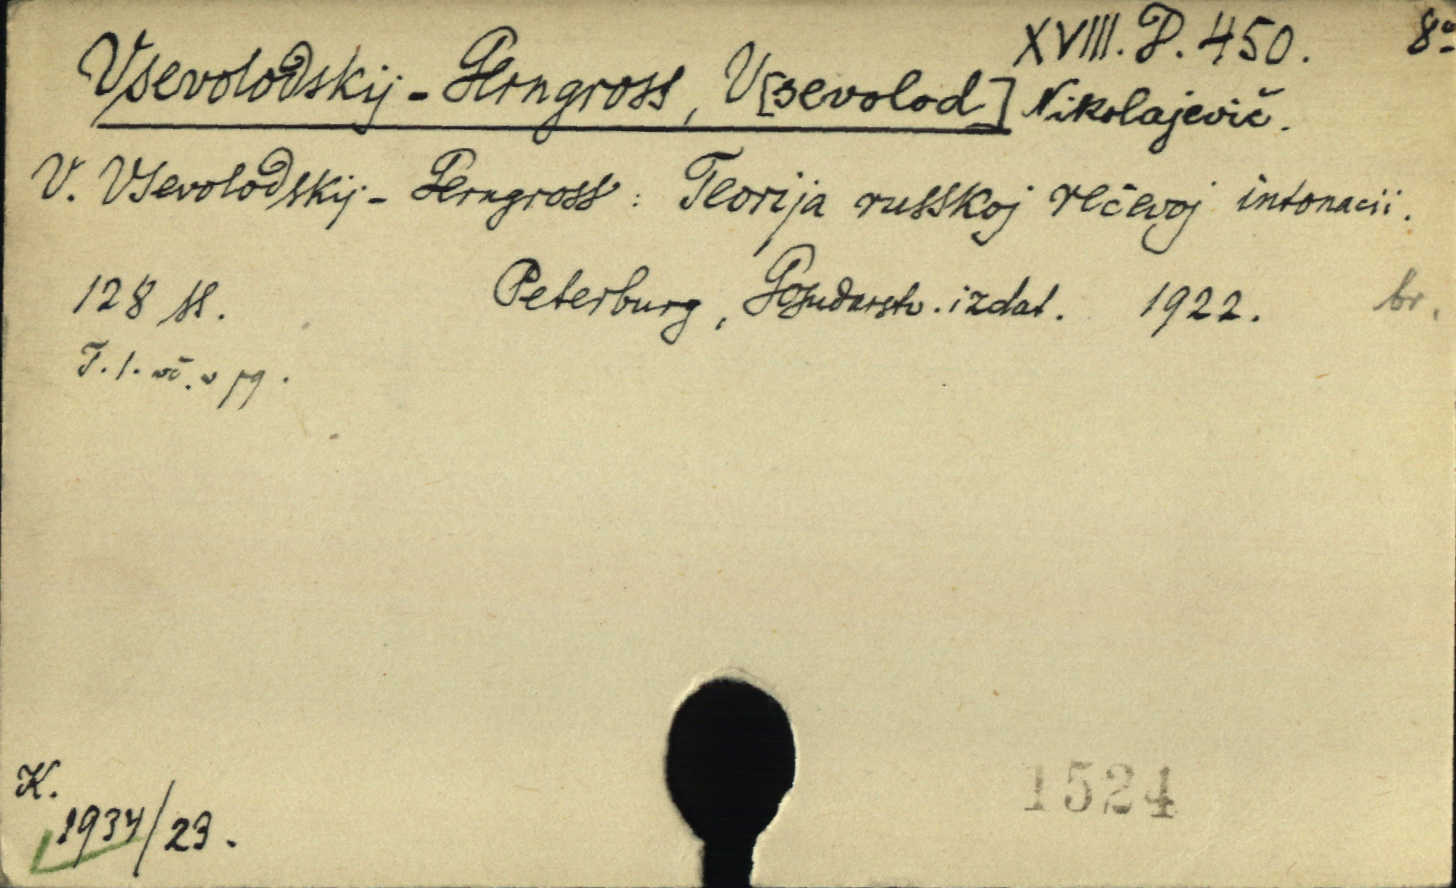 XVIII. D. 450. 8°
Vsevolodskij-Gerngross, V[sevolod] Nikolajevič.
V. Vsevolodskij-Gerngross: Teorija russkoj rečevoj intonacii.
128 ss. Peterburg, Gosudarstv. izdat. 1922. br.
T. l. vč. v pg.
K.
1934/23.
1524